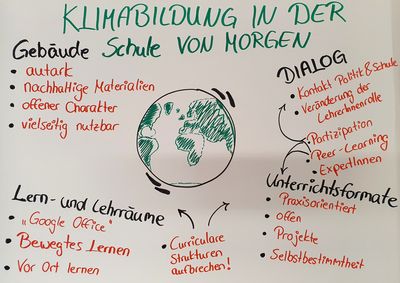 KLIMABILDUNG IN DER
Schule VON MORGEN
Gebäude
• autark
• nachhaltige Materialien
• offener Charakter
• vielseitig nutzbar
DIALOG
• Kontakt Politik & Schule
• Veränderung der
LehrerInnenrolle
• Partizipation
• Peer-Learning
• ExpertInnen
Unterrichtsformate
• Praxisorientiert
• offen
• Projekte
• Selbstbestimmtheit
Lern- und Lehrräume
• „Google Office"
• Bewegtes Lernen
• Vor Ort lernen
• Curriculare
Strukturen
aufbrechen!